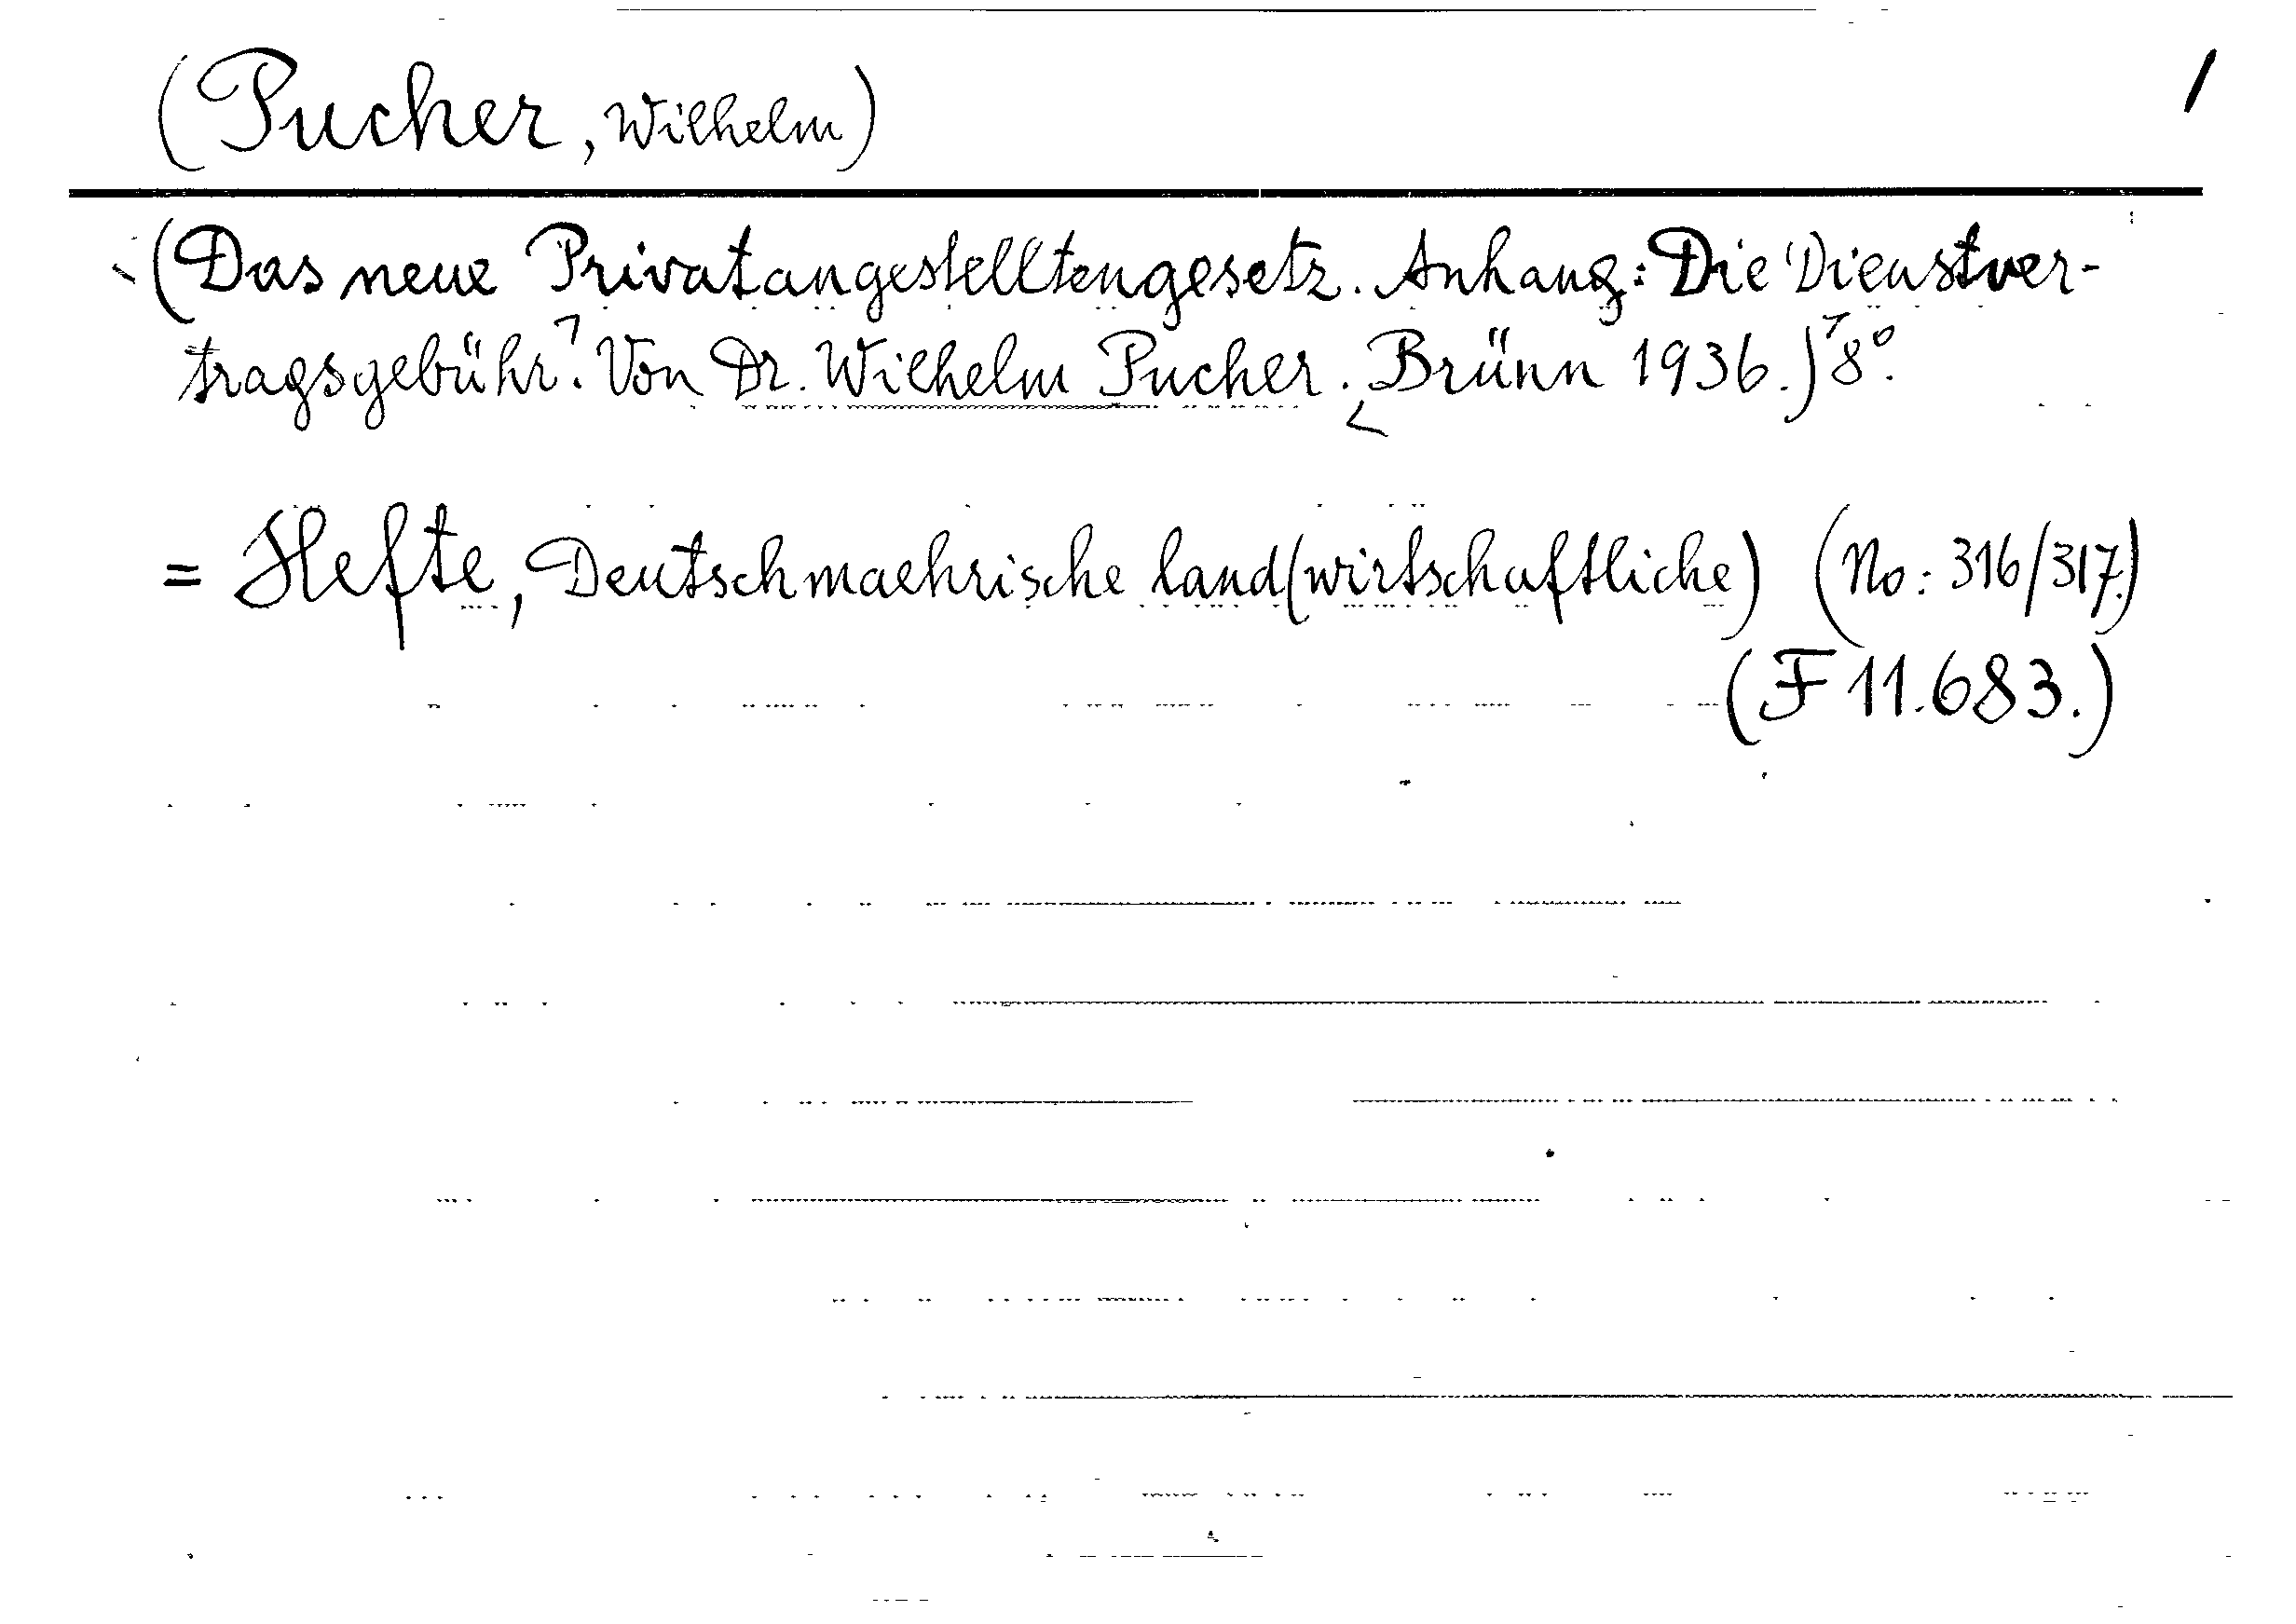 (Pucher, Wilhelm)
(Das neue Privatangestelltengesetz. Anhang: Die Dienstver-
tragsgebühr. Von Dr. Wilhelm Pucher. Brünn 1936.) 8°.
= Hefte, Deutschmaehrische land(wirtschaftliche) (No: 316/317.)
(F 11.683.)